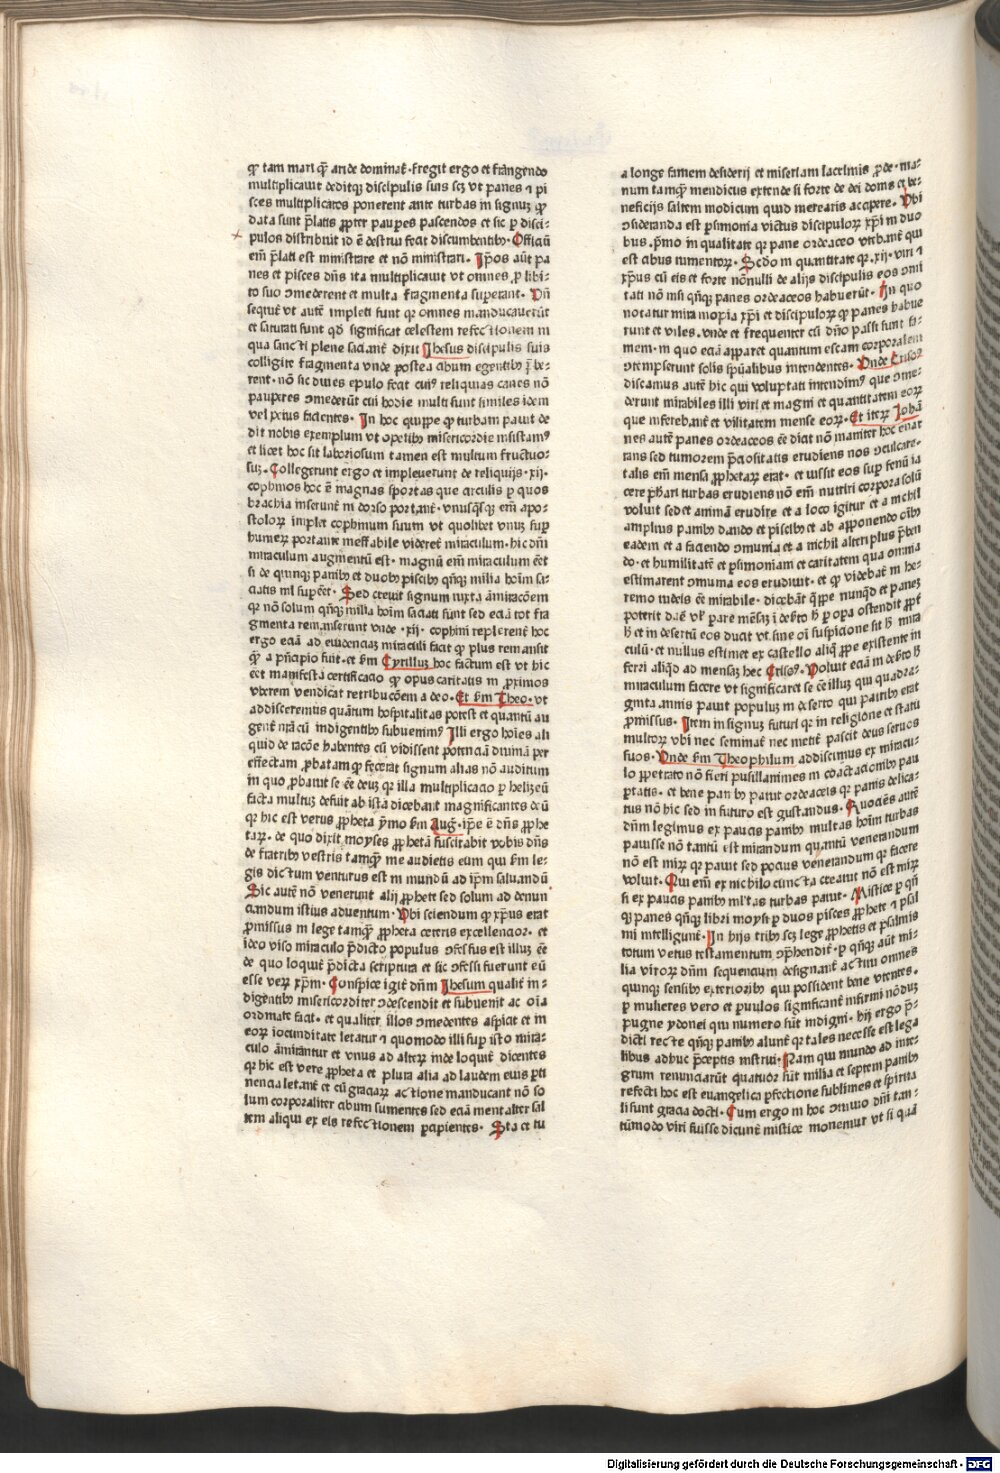 qꝫ tam mari qͥ̄ aride dominat᷑. fregit ergo et frangendo
multiplicauit deditqꝫ discipulis suis scꝫ vt panes ⁊ pi
sces multiplicatos ponerent ante turbas in signuꝫ qꝫ
data sunt p̄latis ꝓpter paupes pascendos et sic ꝑ disci⸗
pulos distribuit id ē destrui fecit discumbentibꝰ. Officiū
em̄ p̄lati est ministrare et nō ministrari. Ip̄os aūt pa
nes et pisces dn̄s ita multiplicauit vt omnes ꝓ libi⸗
to suo ꝯmederent et multa fragmenta superant. Vn̄
sequit᷑ vt autē impleti sunt qꝛ omnes manducauerūt
et saturati sunt qd̄ significat celestem refectionem in
qua sancti plene saciant᷑ dixit Jhesus discipulis suis
colligite fragmenta vnde postea cibum egentibꝰ p̄be⸗
rent. nō sic diues epulo fecit cuiꝰ reliquias canes nō
pauperes ꝯmederūt cui hodie multi sunt similes idem
vel peius facientes. In hoc quippe qꝫ turbam pauit de
dit nobis exemplum vt oꝑibꝰ misericordie insistamꝰ
et licet hoc sit laboriosum tamen est multum fructuo⸗
suꝫ. Collegerunt ergo et impleuerunt de reliquijs. xij.
cophinos hoc ē magnas sportas que circulis ꝑ quos
brachia inserunt᷑ in dorso portant᷑. vnusqͥsqꝫ em̄ apo⸗
stoloꝝ implet cophinum suum vt quolibet vnuꝫ suꝑ
humeꝝ portante ineffabile videret᷑ miraculum. hic dn̄i
miraculum augmentū est. magnū em̄ miraculum eēt
si de quinqꝫ panibꝰ et duobꝰ piscibꝰ qͥnqꝫ milia hoīm sa⸗
ciatis nil suꝑeēt. Sed creuit signum iuxta āmiracōem
qꝛ nō solum qͥnqꝫ milia hoīm saciati sunt sed eciā tot fra
gmenta remanserunt vnde .xij. cophini replerent᷑ hoc
ergo eciā ad euidenciaꝫ miraculi facit qꝫ plus remansit
qͥ̄ a pͥncipio fuit. et ẜm Cyrillus hoc factum est vt hic
eēt manifesta certificacio qꝫ opus caritatis in proximos
vberem vendicat retribucōem a deo. Et ẜm Theo. vt
addisceremus quātum hospitalitas potest et quantū au
gent᷑ nr̄a cū indigentibꝰ subuenimꝰ Illi ergo hoīes ali
quid de racōe habentes cū vidissent potenciā diuinā per
effectam ꝓbatam qꝫ fecerat signum alias nō auditum
in quo ꝓbatur se eē deuꝫ qꝛ illa multiplicacio ꝑ helizeū
facta multuꝫ defuit ab ista dicebant magnificantes deū
qꝛ hic est verus ꝓpheta ymo ẜm Aug. ip̄e ē dn̄s ꝓphe
taꝝ. de quo dixit moyses ꝓphetā suscitabit vobis dn̄s
de fratribꝰ vestris tamqꝫ me audietis eum qui ẜm le⸗
gis dictum venturus est in mundū ad ip̄m saluandū
Sic autē nō venerunt alij ꝓphete sed solum ad denun
ciandum istius aduentum. Vbi sciendum qꝫ xp̄us erat
ꝓmissus in lege tamqꝫ ꝓpheta ceteris excellencior. et
ideo viso miraculo p̄dicto populus ꝯfessus est illuꝫ eē
de quo loquit᷑ p̄dicta scriptura et sic ꝯfessi fuerunt eū
esse veꝝ xp̄m. Conspice igit᷑ dn̄m Jhesum qualit᷑ in⸗
digentibꝰ misericorditer ꝯdescendit et subuenit ac oīa
ordinate facit. et qualiter illos ꝯmedentes aspiciat et in
eoꝝ iocunditate letatur ⁊ quomodo illi suꝑ isto mira⸗
culo āmirantur et vnus ad alteꝝ inde loquit᷑ dicentes
qꝛ hic est vere ꝓpheta et plura alia ad laudem eius ꝑti
nencia letant᷑ et cū graciaꝝ actione manducant nō so
lum corporaliter cibum sumentes sed eciā mentaliter sal
tem aliqui ex eis refectionem ꝑcipientes. Sta et tu
a longe famem desiderij et miseriam lacrimis ꝓde. ma⸗
num tamqꝫ mendicus extende si forte de dei domꝰ et be⸗
neficijs saltem modicum quid merearis accipere. Vbi
ꝯsideranda est ꝑsimonia victus discipuloꝝ xp̄i in duo
bus. pͥmo in qualitate qꝛ pane ordeaceo vtebant᷑ qui
est cibus iumentoꝝ. Scd̄o in quantitate qꝛ .xij. viri ⁊
xp̄us cū eis et forte nōnulli de alijs discipulis eos ꝯmi
tati nō nisi qͥnqꝫ panes ordeaceos habuerūt. In quo
notatur mira inopia xp̄i et discipuloꝝ qꝫ panes habue
runt et viles. vnde et frequenter cū dn̄o passi sunt fa⸗
mem. in quo eciā apparet quantum escam corporalem
ꝯtempserunt solis spūalibus intendentes. Vnde Crisoꝰ
discamus autē hic qui voluptati intendimꝰ que ꝯme⸗
derunt mirabiles illi viri et magni et quantitatem eoꝝ
que inferebant᷑ et vilitatem mense eoꝝ. Et iteꝝ Johā
nes autē panes ordeaceos eē dicit nō inaniter hoc enar
rans sed tumorem p̄ciositatis erudiens nos ꝯculcare.
talis em̄ mensa ꝓphetaꝝ erat. et iussit eos suꝑ fenū ia
cere pͥhari turbas erudiens nō em̄ nutriri corpora solū
voluit sed et animā erudire et a loco igitur et a nichil
amplius panibꝰ dando et piscibꝰ et ab apponendo oībꝰ
eadem et a faciendo ꝯmunia et a nichil alteri plus p̄ben
do. et humilitatē et ꝑsimoniam et caritatem qua omnia
estimarent ꝯmunia eos erudiuit. et qꝫ videbat᷑ in he⸗
remo iudeis eē mirabile. dicebāt qͥppe nunqͥd et paneꝫ
poterit dare vꝉ pare mēsaꝫ i debto
culū. et nullus estimet ex castello aliqͥ ꝓpe existente in
ferri aliqͥd ad mensaꝫ hec Crisoꝰ. Voluit eciā in debto
miraculum facere vt significaret se eē illuꝫ qui quadra⸗
ginta annis pauit populuꝫ in deserto qui patribꝰ erat
ꝓmissus. Item in signuꝫ futuri qꝛ in religione et statu
multoꝝ vbi nec seminat᷑ nec metit᷑ pascit deus seruos
suos. Vnde ẜm Theophilum addiscimus ex miracu⸗
lo ꝑpetrato nō fieri pusillanimes in coactacionibꝰ pau
ꝑtatis. et bene panibꝰ patitur ordeaceis qꝛ panis delica⸗
tus nō hic sed in futuro est gustandus. Quociēs autē
dn̄m legimus ex paucis panibꝰ multas hoīm turbas
pauisse nō tantū est mirandum quantū venerandum
nō est miꝝ qꝛ pauit sed pocius venerandum qꝛ facere
voluit. Qui em̄ ex nichilo cuncta creauit nō est miꝝ
si ex paucis panibꝰ ml̄tas turbas pauit. Mistice ꝑ qͥn
qꝫ panes qͥnqꝫ libri moysi ꝑ duos pisces ꝓphete ⁊ psal
mi intelligunt᷑. In hijs tribꝰ scꝫ lege ꝓphetis et psalmis
totum vetus testamentum ꝯp̄hendit᷑. ꝑ qͥnqꝫ aūt mi⸗
lia viroꝝ dn̄m sequencium designant᷑ actiui omnes
quinqꝫ sensibꝰ exterioribꝰ qui possident bene vtentes.
ꝑ mulieres vero et ꝑuulos significant᷑ infirmi nōduꝫ
pugne ydonei qui numero sūt indigni. hij ergo p̄⸗
dicti recte qͥnqꝫ panibꝰ alunt᷑ qꝛ tales necesse est lega
libus adhuc p̄ceptis instrui. Nam qui mundo ad inte⸗
grum renunciarūt quatuoꝛ sūt milia et septem panibꝰ
refecti hoc est euangelica ꝑfectione sublimes et spirita
li sunt gracia docti. Cum ergo in hoc ꝯuiuio dn̄i tan⸗
tūmodo viri fuisse dicunt᷑ mistice monemur vt si quā
Digitalisierung gefördert durch die Deutsche Forschungsgemeinschaft - DFG